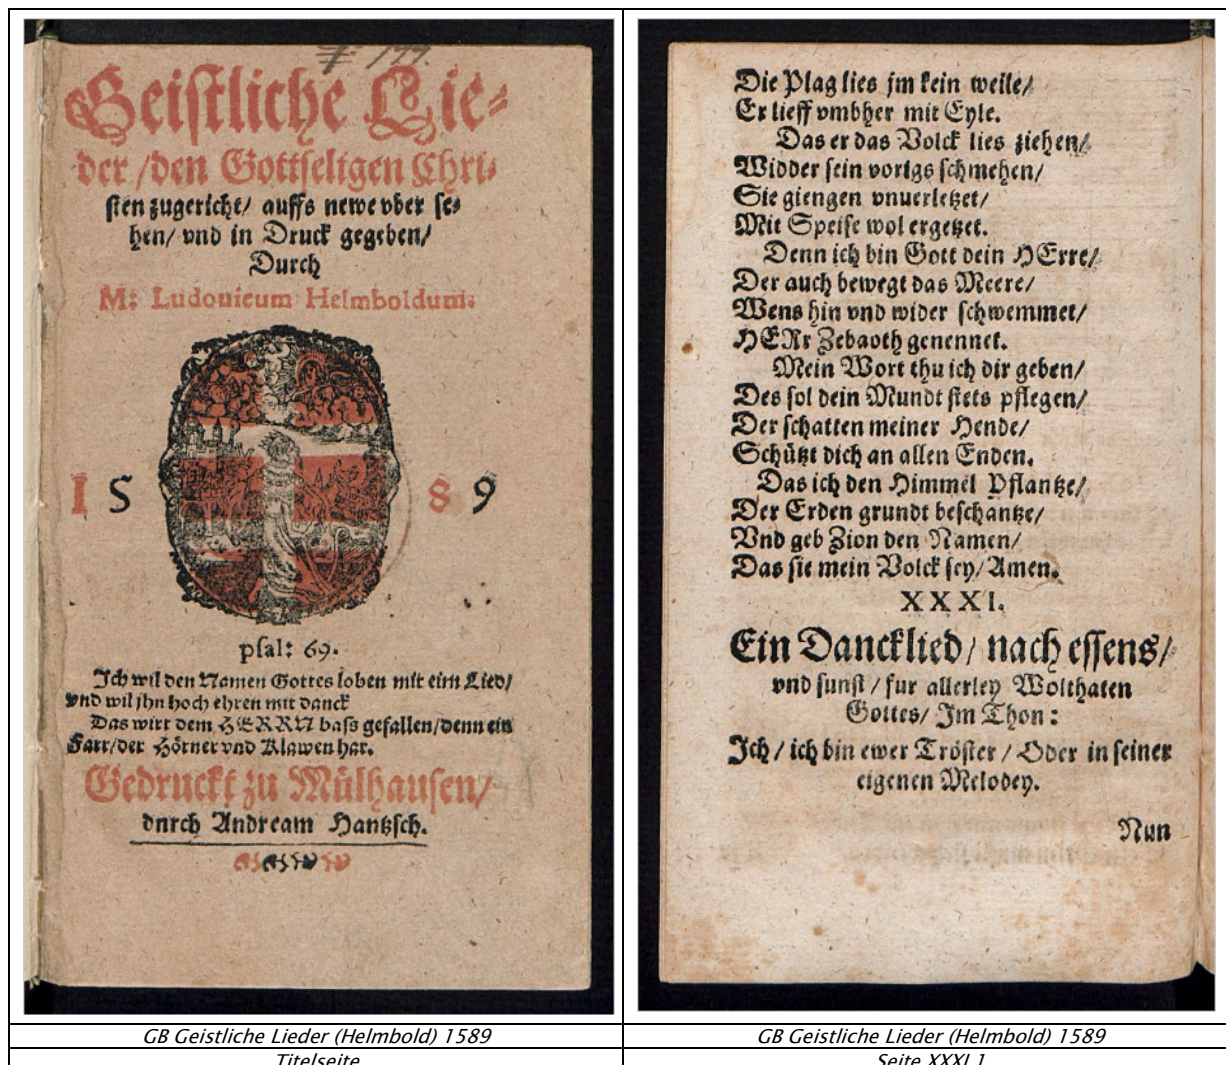 199.
Geistliche Lie-
der / den Gottseligen Chri-
sten zugericht / auffs newe vber se-
hen / vnd in Druck gegeben /
Durch
M: Ludouicum Helmboldum.
15 89
psal: 69.
Ich wil den Namen Gottes loben mit eim Lied /
vnd wil jhn hoch ehren mit danck
Das wirt dem HERRN bass gefallen / denn ein
Farr / der Hörner vnd Klawen hat.
Gedruckt zu Mülhausen /
dnrch Andream Hantzsch.
GB Geistliche Lieder (Helmbold) 1589
Titelseite
Die Plag lies jm kein weile /
Er lieff vmbher mit Eyle.
Das er das Volck lies ziehen /
Widder sein vorigs schmehen /
Sie giengen vnuerletzet /
Mit Speise wol ergetzet.
Denn ich bin Gott dein HErre /
Der auch bewegt das Meere /
Wens hin vnd wider schwemmet /
HERr Zebaoth genennet.
Mein Wort thu ich dir geben /
Des sol dein Mundt stets pflegen /
Der schatten meiner Hende /
Schützt dich an allen Enden.
Das ich den Himmel Pflantze /
Der Erden grundt beschantze /
Vnd geb Zion den Namen /
Das sie mein Volck sey / Amen.
XXXI.
Ein Dancklied / nach essens /
vnd sunst / fur allerley Wolthaten
Gottes / Im Thon :
Ich / ich bin ewer Tröster / Oder in seiner
eigenen Melodey.
Nun
GB Geistliche Lieder (Helmbold) 1589
Seite XXXI.1